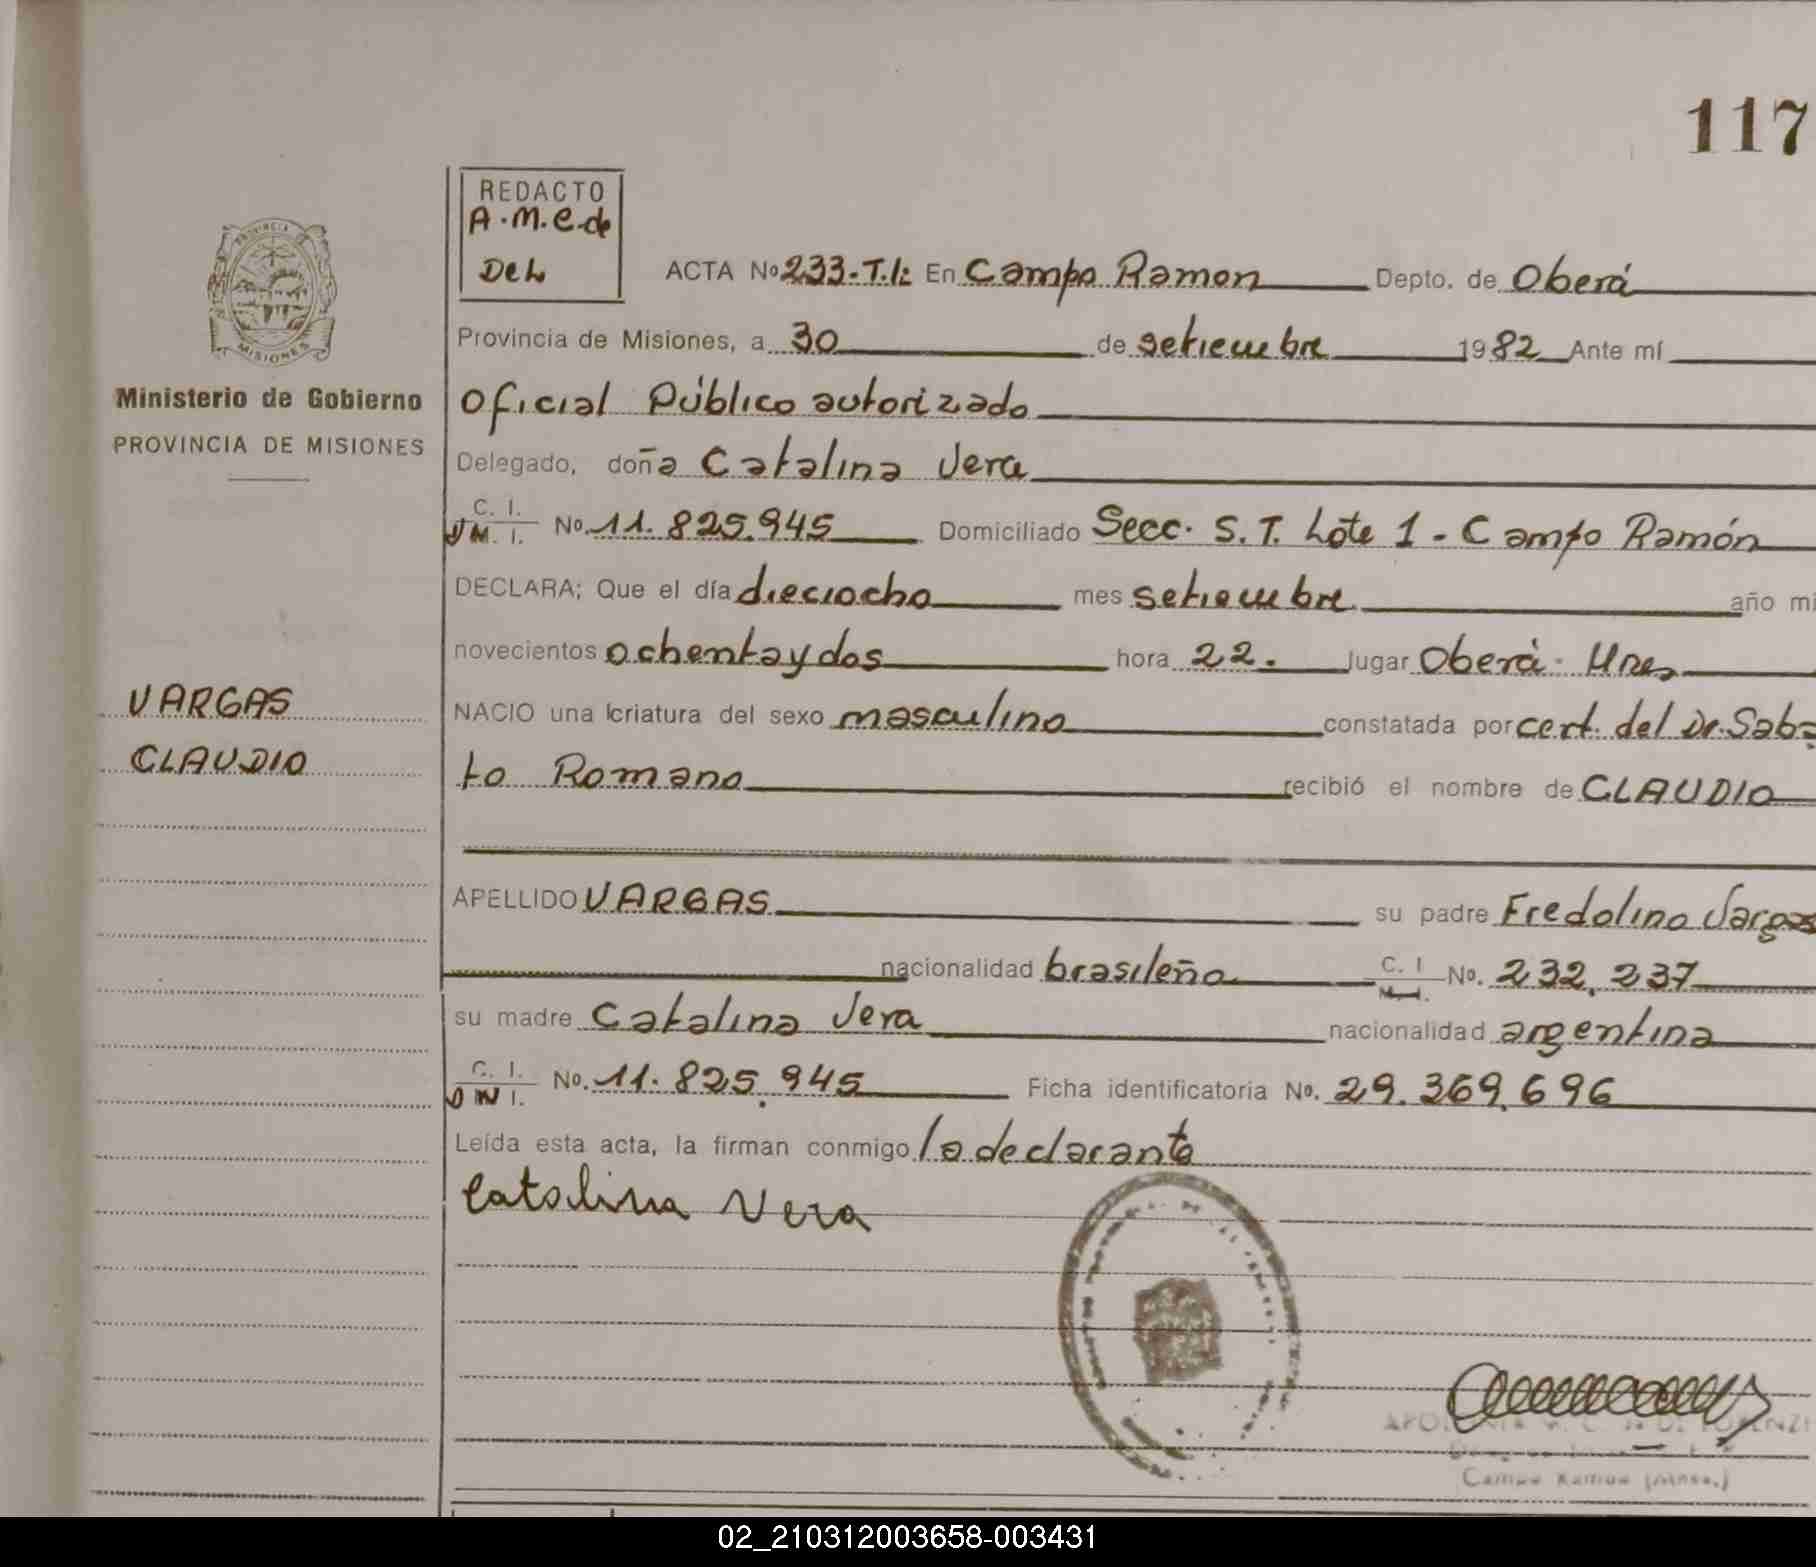 117
REDACTO
A.M.C. de
DeL
ACTA No 233-T.I: En Campo Ramon Depto. de Oberá
Provincia de Misiones, a 30 de setiembre 1982 Ante mí
Oficial Público autorizado
Delegado, doña Catalina Vera
C. I.
M. I. No. 11.825.945 Domiciliado Secc. S.T. Lote 1 - Campo Ramón
DECLARA; Que el día dieciocho mes setiembre año mi
novecientos ochenta y dos hora 22. lugar Oberá - Mnes
NACIO una criatura del sexo masculino constatada por cert. del Dr. Saba
to Romano recibió el nombre de CLAUDIO
APELLIDO VARGAS su padre Fredolino Vargas
nacionalidad brasileña C. I No. 232.237
su madre Catalina Vera nacionalidad argentina
C. I.
No. 11.825.945 Ficha identificatoria No. 29.369.696
Leída esta acta, la firman conmigo la declarante
Catalina Vera
PROVINCIA DE
MISIONES
Ministerio de Gobierno
PROVINCIA DE MISIONES
VARGAS
CLAUDIO
Campo Ramon (Mnes.)
02_210312003658-003431